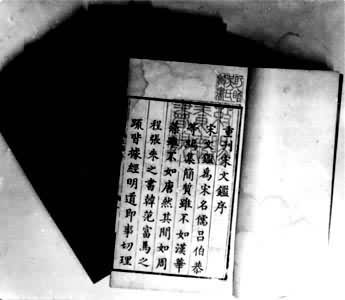 重刊宋文鑑序
宋文鑑為宋名儒呂伯恭
集簡質雖不如漢華
藻雖不如唐然其間如周
程張朱之書韓范富馬之
類皆據經明道即事切理